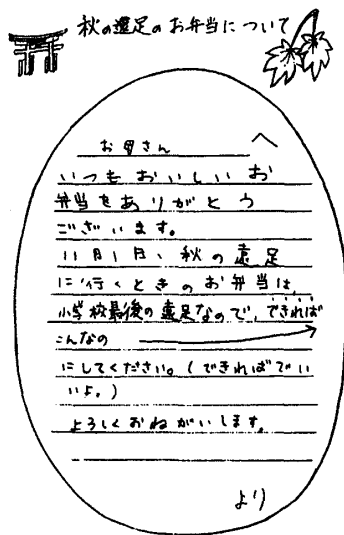 秋の遠足のお弁当について
お母さん へ
いつもおいしいお
弁当をありがとう
ございます。
11月1日、秋の遠足
に行くときのお弁当は、
小学校最後の遠足なので、できれば
こんなの
にしてください。(できればでい
いよ。)
よろしくおねがいします。
より